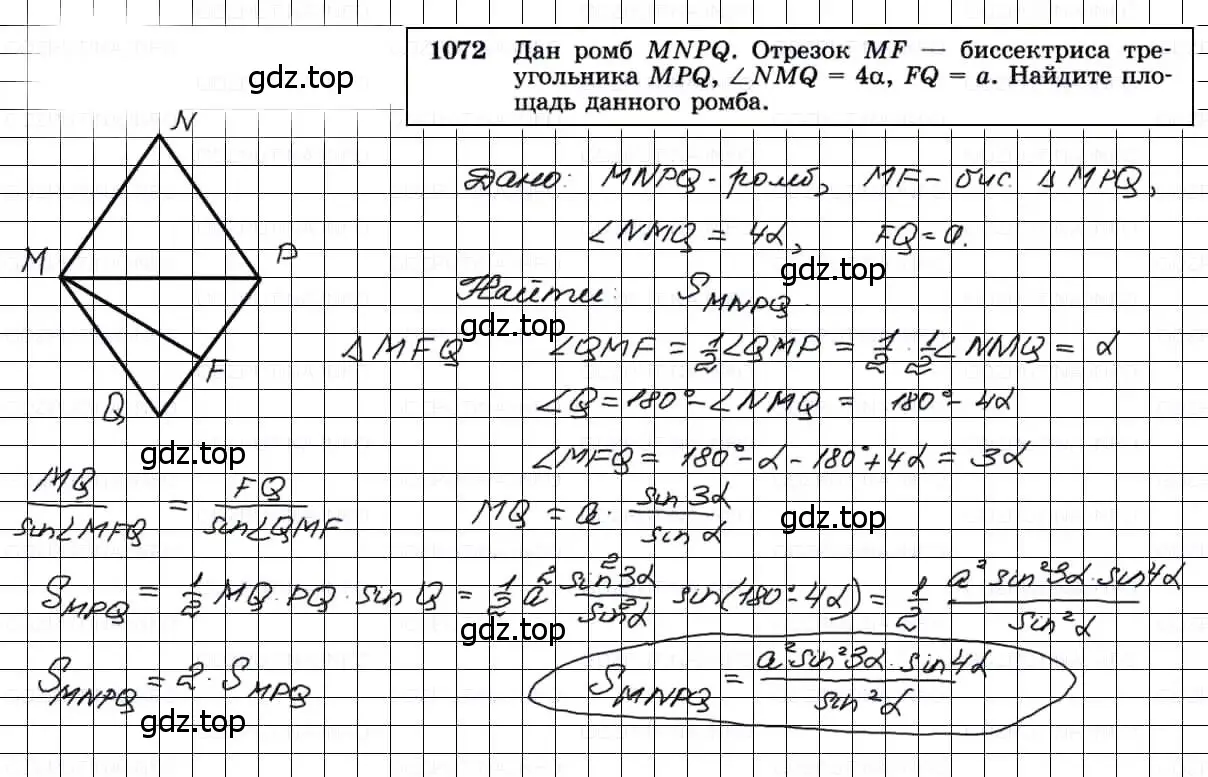 1072 Дан ромб MNPQ. Отрезок MF — биссектриса тре-
угольника MPQ, ∠NMQ = 4α, FQ = a. Найдите пло-
щадь данного ромба.
gdz.top
N
M
P
F
Q
Дано: MNPQ - ромб, MF - бис. Δ MPQ,
∠NMQ = 4α, FQ = a.
gdz.top
Найти: S_MNPQ.
gdz.top
Δ MFQ ∠QMF = 1/2 ∠QMP = 1/2 · 1/2 ∠NMQ = α
∠Q = 180° - ∠NMQ = 180° - 4α
gdz.top
∠MFQ = 180° - α - 180° + 4α = 3α
MQ/sin∠MFQ = FQ/sin∠QMF MQ = a · sin 3α/sin α
gdz.top
S_MPQ = 1/2 MQ · PQ · sin Q = 1/2 a² sin²3α/sin²α sin(180° - 4α) = 1/2 a² sin²3α · sin4α/sin²α
gdz.top
S_MNPQ = 2 · S_MPQ S_MNPQ = a² sin²3α · sin4α/sin²α
gdz.top